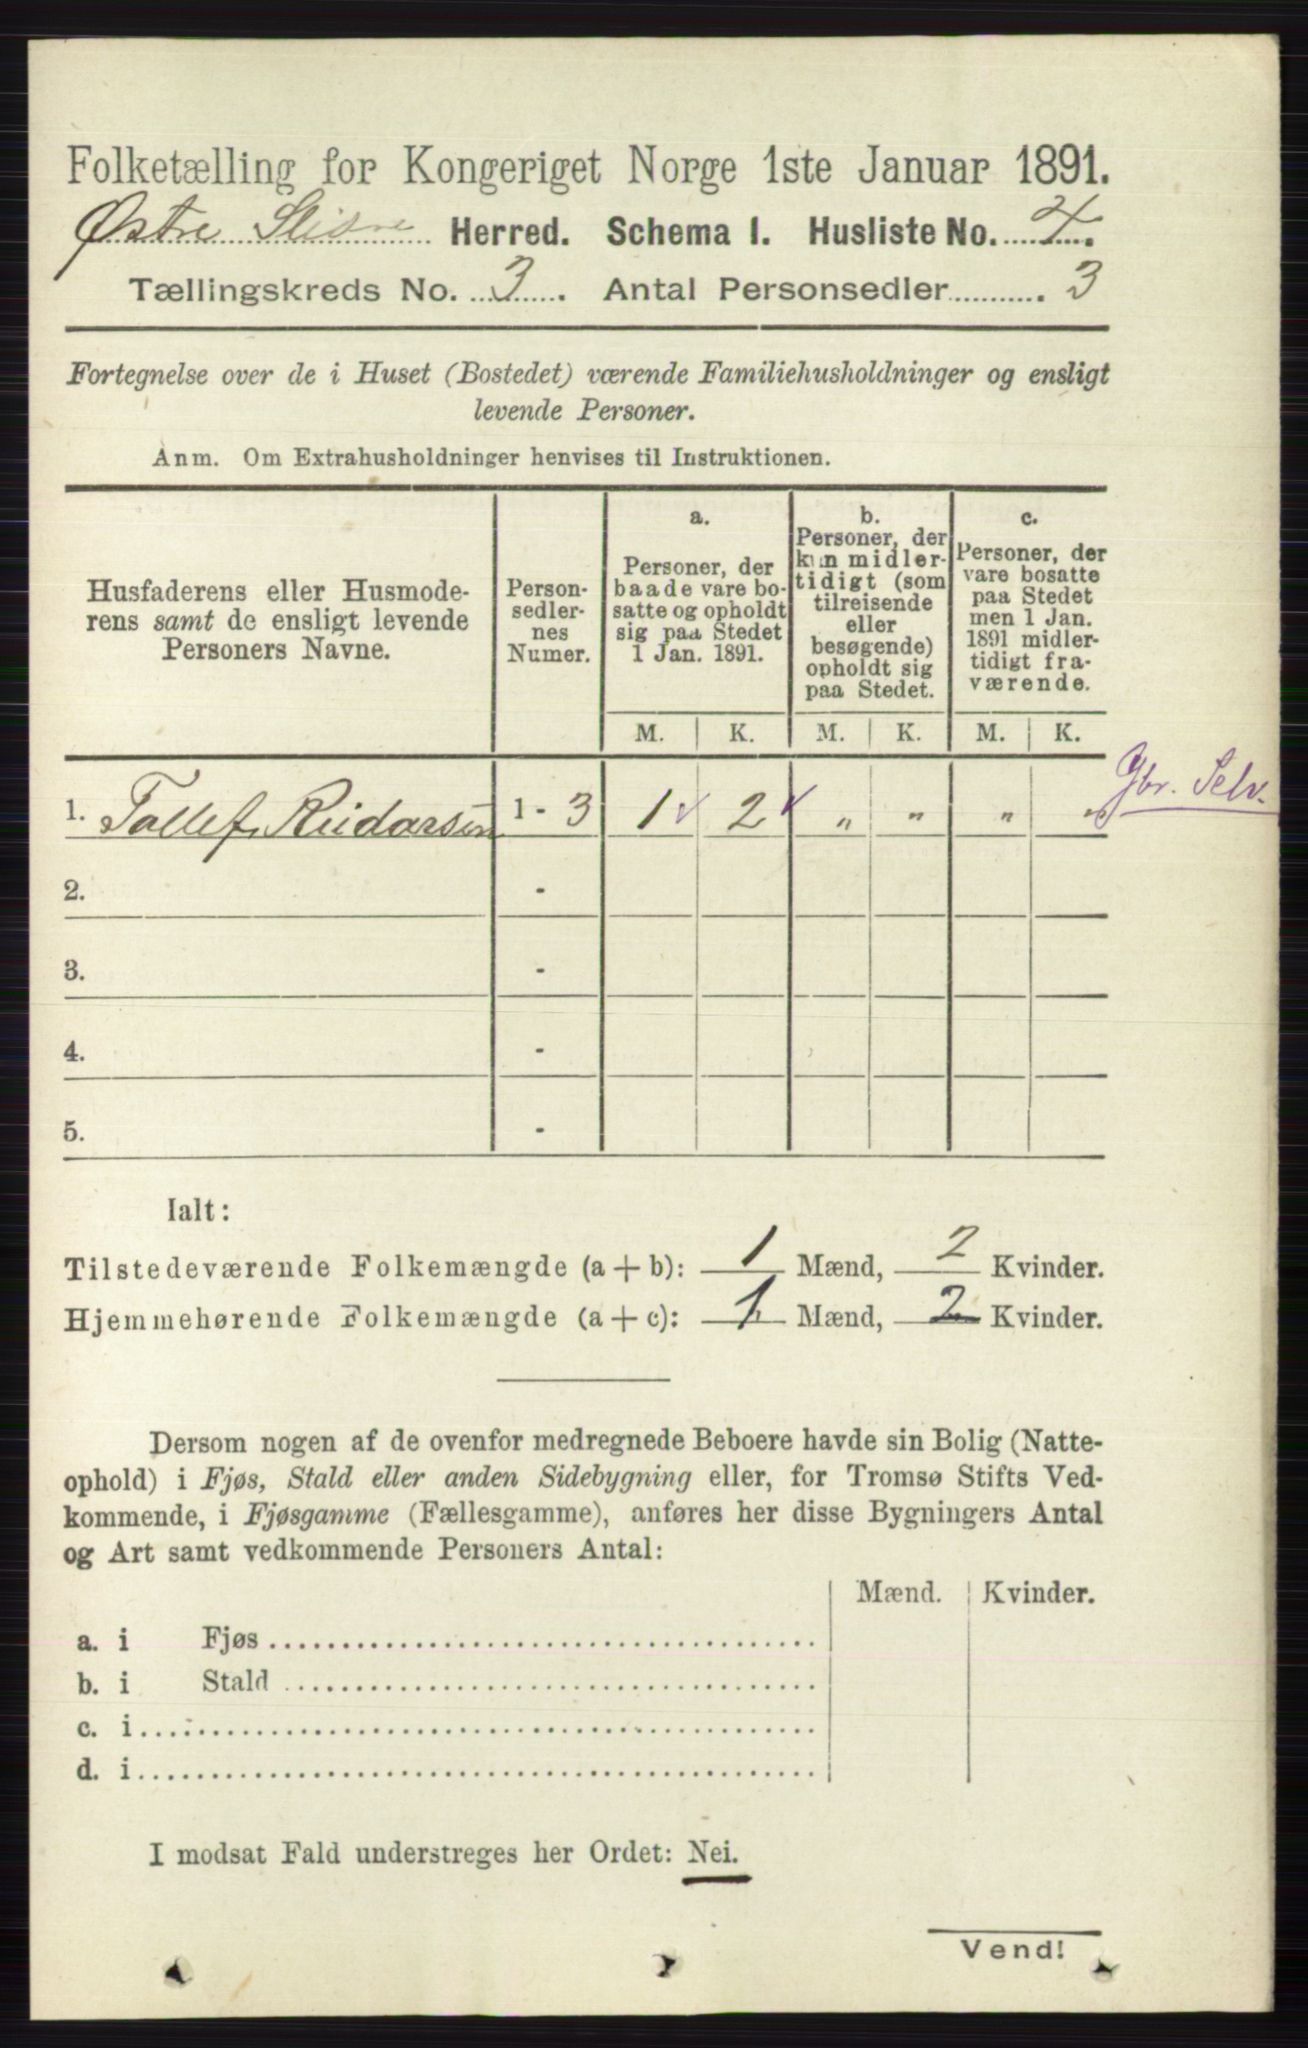 Folketælling for Kongeriget Norge 1ste Januar 1891.
Østre Slidre Herred. Schema I. Husliste No. 4.
Tællingskreds No. 3. Antal Personsedler 3
Fortegnelse over de i Huset (Bostedet) værende Familiehusholdninger og ensligt
levende Personer.
Anm. Om Extrahusholdninger henvises til Instruktionen.
Husfaderens eller Husmode-
rens samt de ensligt levende
Personers Navne.
Person-
sedler-
nes
Numer.
a.
Personer, der
baade vare bo-
satte og opholdt
sig paa Stedet
1 Jan. 1891.
b.
Personer, der
kun midler-
tidigt (som
tilreisende
eller
besøgende)
opholdt sig
paa Stedet.
c.
Personer, der
vare bosatte
paa Stedet
men 1 Jan.
1891 midler-
tidigt fra-
værende.
M. K. M. K. M. K.
1. Tollef Reidarsen 1 - 3 1 2 " " " "
Gbr. Selv.
2. -
3. -
4. -
5. -
Ialt:
Tilstedeværende Folkemængde (a + b): 1 Mænd, 2 Kvinder.
Hjemmehørende Folkemængde (a + c): 1 Mænd, 2 Kvinder.
Dersom nogen af de ovenfor medregnede Beboere havde sin Bolig (Natte-
ophold) i Fjøs, Stald eller anden Sidebygning eller, for Tromsø Stifts Ved-
kommende, i Fjøsgamme (Fællesgamme), anføres her disse Bygningers Antal
og Art samt vedkommende Personers Antal:
Mænd. Kvinder.
a. i Fjøs
b. i Stald
c. i
d. i
I modsat Fald understreges her Ordet: Nei.
Vend!